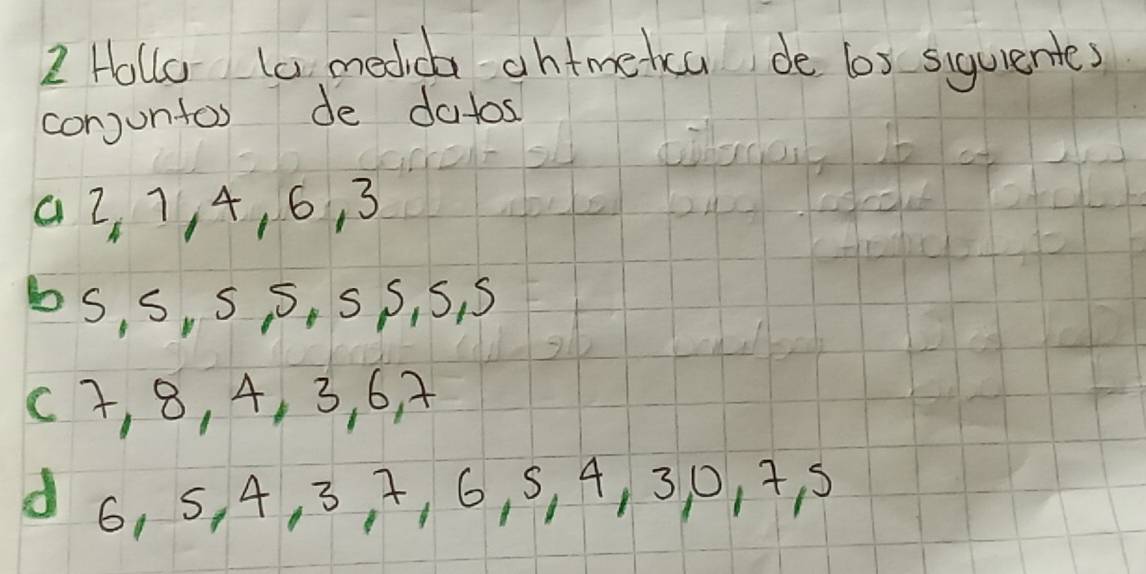 2 Halla la medida aritmetica de los siguientes
conjuntos de datos
a 2, 1, 4, 6, 3
b 5, 5, 5, 5, 5, 5, 5, 5
c 7, 8, 4, 3, 6, 7
d 6, 5, 4, 3, 7, 6, 5, 4, 3, 0, 7, 5